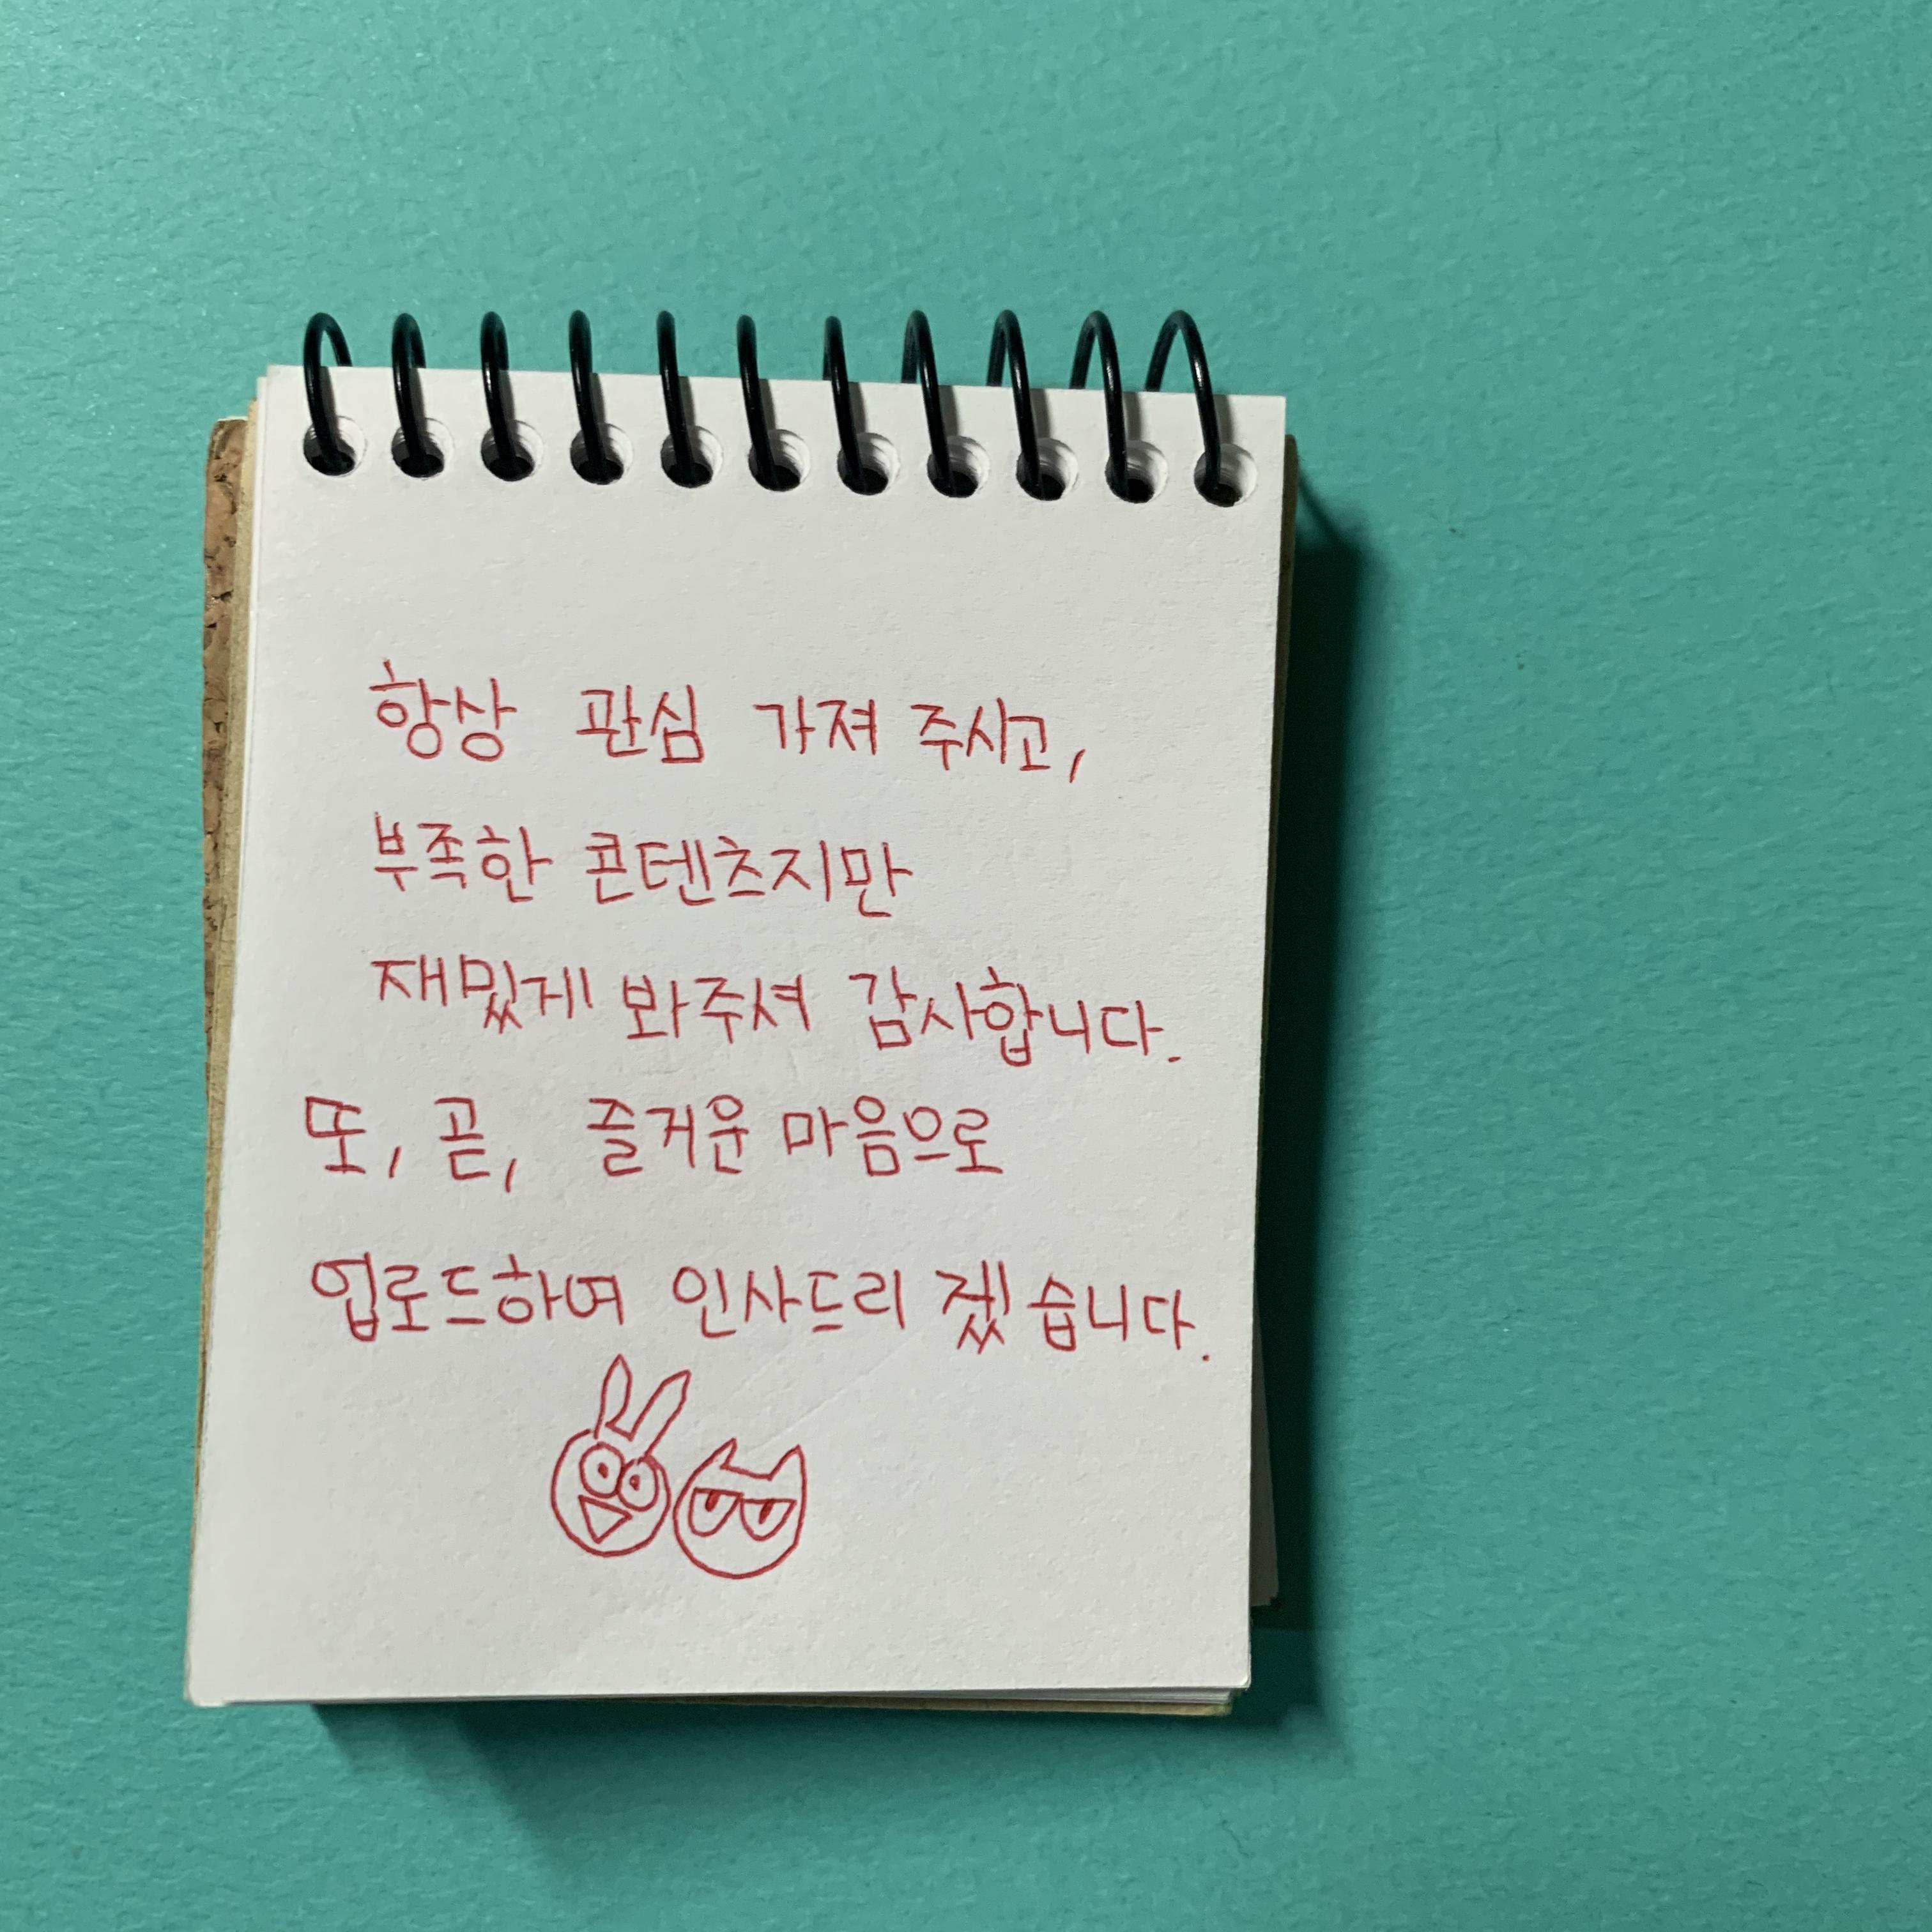 항상 관심 가져 주시고,
부족한 콘텐츠지만
재밌게 봐주셔 감사합니다.
또, 곧, 즐거운 마음으로
업로드하여 인사드리겠습니다.